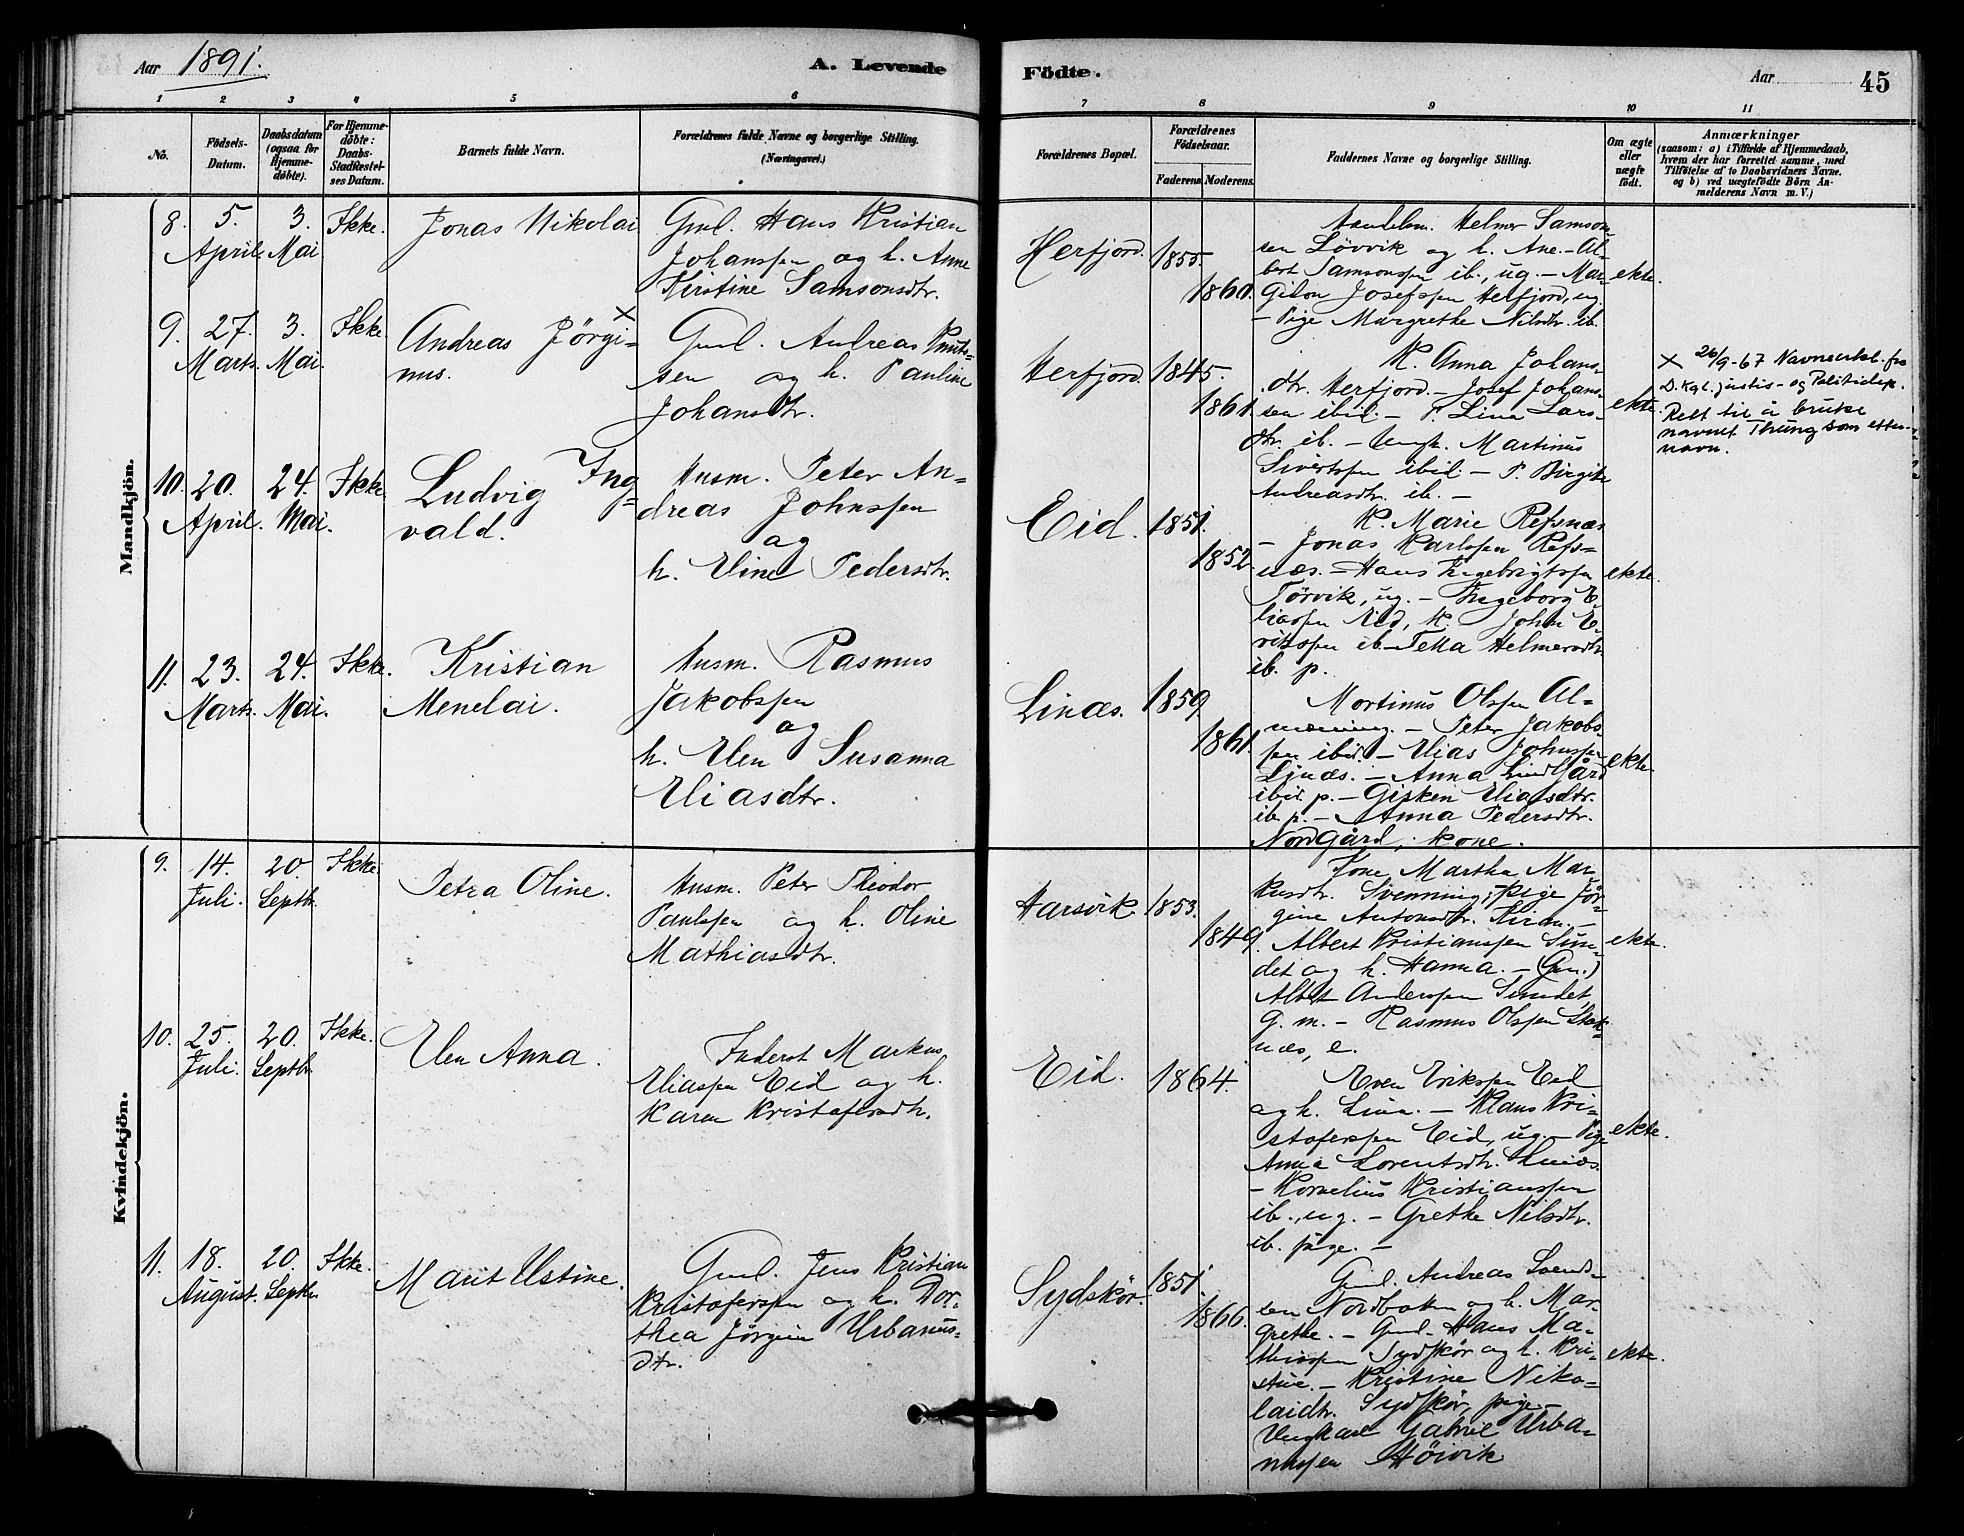 Aar 1891. A. Levende Födte. Aar 45
1 2 3 4 5 6 7 8 9 10 11
No.
Födsels-
Datum.
Daabsdatum
(ogsaa for
Hjemme-
döbte).
For Hjemme-
döbte:
Daabs-
Stadfæstel-
ses Datum.
Barnets fulde Navn.
Forældrenes fulde Navne og borgerlige Stilling.
(Næringsvei.)
Forældrenes Bopæl.
Forældrenes
Födselsaar.
Faderens. Moderens.
Faddernes Navne og borgerlige Stilling.
Om ægte
eller
uægte
födt.
Anmærkninger
(saasom: a) i Tilfælde af Hjemmedaab,
hvem der har forrettet samme, med
Tilföielse af to Daabsvidners Navne.
og b) ved uægtefödte Börn An-
melderens Navn m. V.)
Mandkjön.
8. 5. April. 3. Mai Ikke. Jonas Nikolai
Gml. Hans Kristian
Johanssen og h. Anne
Kirstine Samsonsdtr.
Herfjord. 1855. 1860.
Helmer Samson-
sen Lövvik og h. Ane. - Al-
bert Samsonssen ib., ug. - Mar-
Gidon Josefssen Herfjord, ug.
- Pige Margrethe Nilsdtr. ib.
ekte.
9. 27. Marts. 3. Mai. Ikke. Andreas Jörgi- x
nus.
Gml. Andreas Knuts-
sen og h. Pauline
Johansdtr.
Herfjord. 1845. 1861.
K. Anna Johans-
dtr. Herfjord. - Josef Johans-
sen ibid. - P. Lina Lars-
dtr. ib. - Ungk. Martinus
Sivertssen ibid. - P. Birgitte
Andreasdtr. ib. -
ekte.
x 26/9-67 Navneutst. fra
D. Kgl. justis- og Politidep.
Rett til å bruke
navnet Thung som etter-
navn.
10. 20. April. 24. Mai. Ikke. Ludvig Ing-
vald.
Husm. Peter An-
dreas Johnssen
og
h. Eline Pedersdtr.
Eid. 1851. 1852.
K. Marie Refsnæs
- Jonas Karlssen Refs-
næs. - Hans Ingebrigtssen
Törvik, ug. - Ingeborg E-
liassen Eid, K. John E-
rikssen ib. - Tella Helmersdtr.
ib. p.
ekte.
11. 23. Marts. 24. Mai. Ikke. Kristian
Menelai.
Husm. Rasmus
Jakobssen
og
h. Elen Susanna
Eliasdtr.
Linæs. 1859. 1861.
Mortinus Olssen Al-
menning. - Peter Jakobs-
sen ibid. - Elias Johnssen
Linæs. - Anna Lindgård
ibid. p. - Gisken Eliasdtr.
ib. p. - Anna Pedersdtr.
Nordgård, kone.
ekte.
Kvindekjön.
9. 14. Juli. 20. Septbr. Ikke. Petra Oline.
Husm. Peter Theodor
Paulssen og h. Oline
Mathiasdtr.
Harsvik. 1853. 1849.
Kone Martha Mar-
kusdtr. Svenning; Pige Jör-
gine Antonsdtr. Kiran. -
Albert Kristianssen Sun-
det og h. Hanna. - (Gm.)
Albert Anderssen Sundet,
g. m. - Rasmus Olssen Stok-
næs, e.
ekte.
10. 25. Juli. 20. Septbr. Ikke. Elen Anna.
Inderst Markus
Eliassen Eid og h.
Karen Kristofersdtr.
Eid. 1864.
Even Erikssen Eid
og h. Lina. - Klaus Kri-
stoferssen Eid, ug. - Pige
Anna Lorentsdtr. Linæs.
- Kornelius Kristianssen
ib., ug. - Grethe Nilsdtr.
ib. pige. -
ekte.
11. 18. August. 20. Septbr. Ikke. Marit Ustine.
Gml. Jens Kristian
Kristoferssen og h. Dor-
thea Jörgine Urbanus-
dtr.
Sydskör. 1851. 1866.
Gml. Andreas Svends-
sen Nordbakken og h. Mar-
grethe. - Gml. Hans Ma-
thiassen Sydskör og h. Kri-
stine. - Kristine Niko-
laidtr. Sydskör, pige. -
Ungkarl Gabriel Urba-
nussen Höivik
ekte.